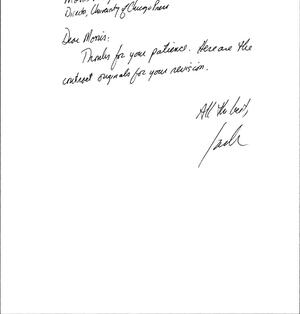 Director, University of Chicago Press
Dear Morris:
Thanks for your patience. Here are the
contract originals for your revision.
All the best,